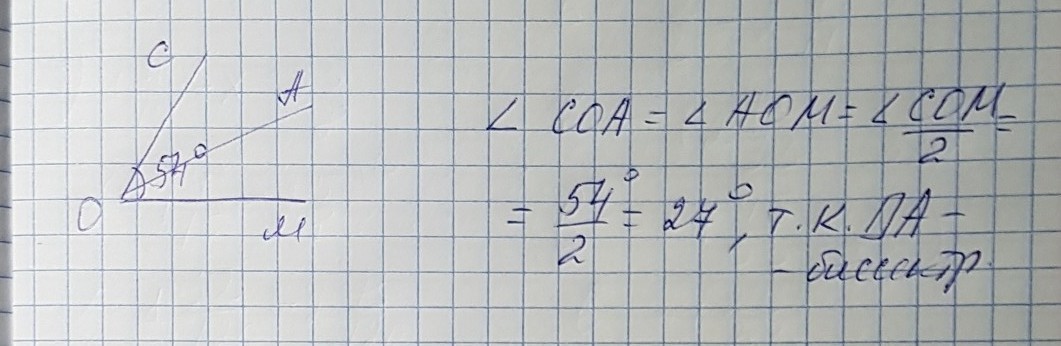 C
A
54°
O
M
∠ COA = ∠ AOM = ∠ COM/2 =
= 54°/2 = 27°, т.к. OA –
– биссектр.